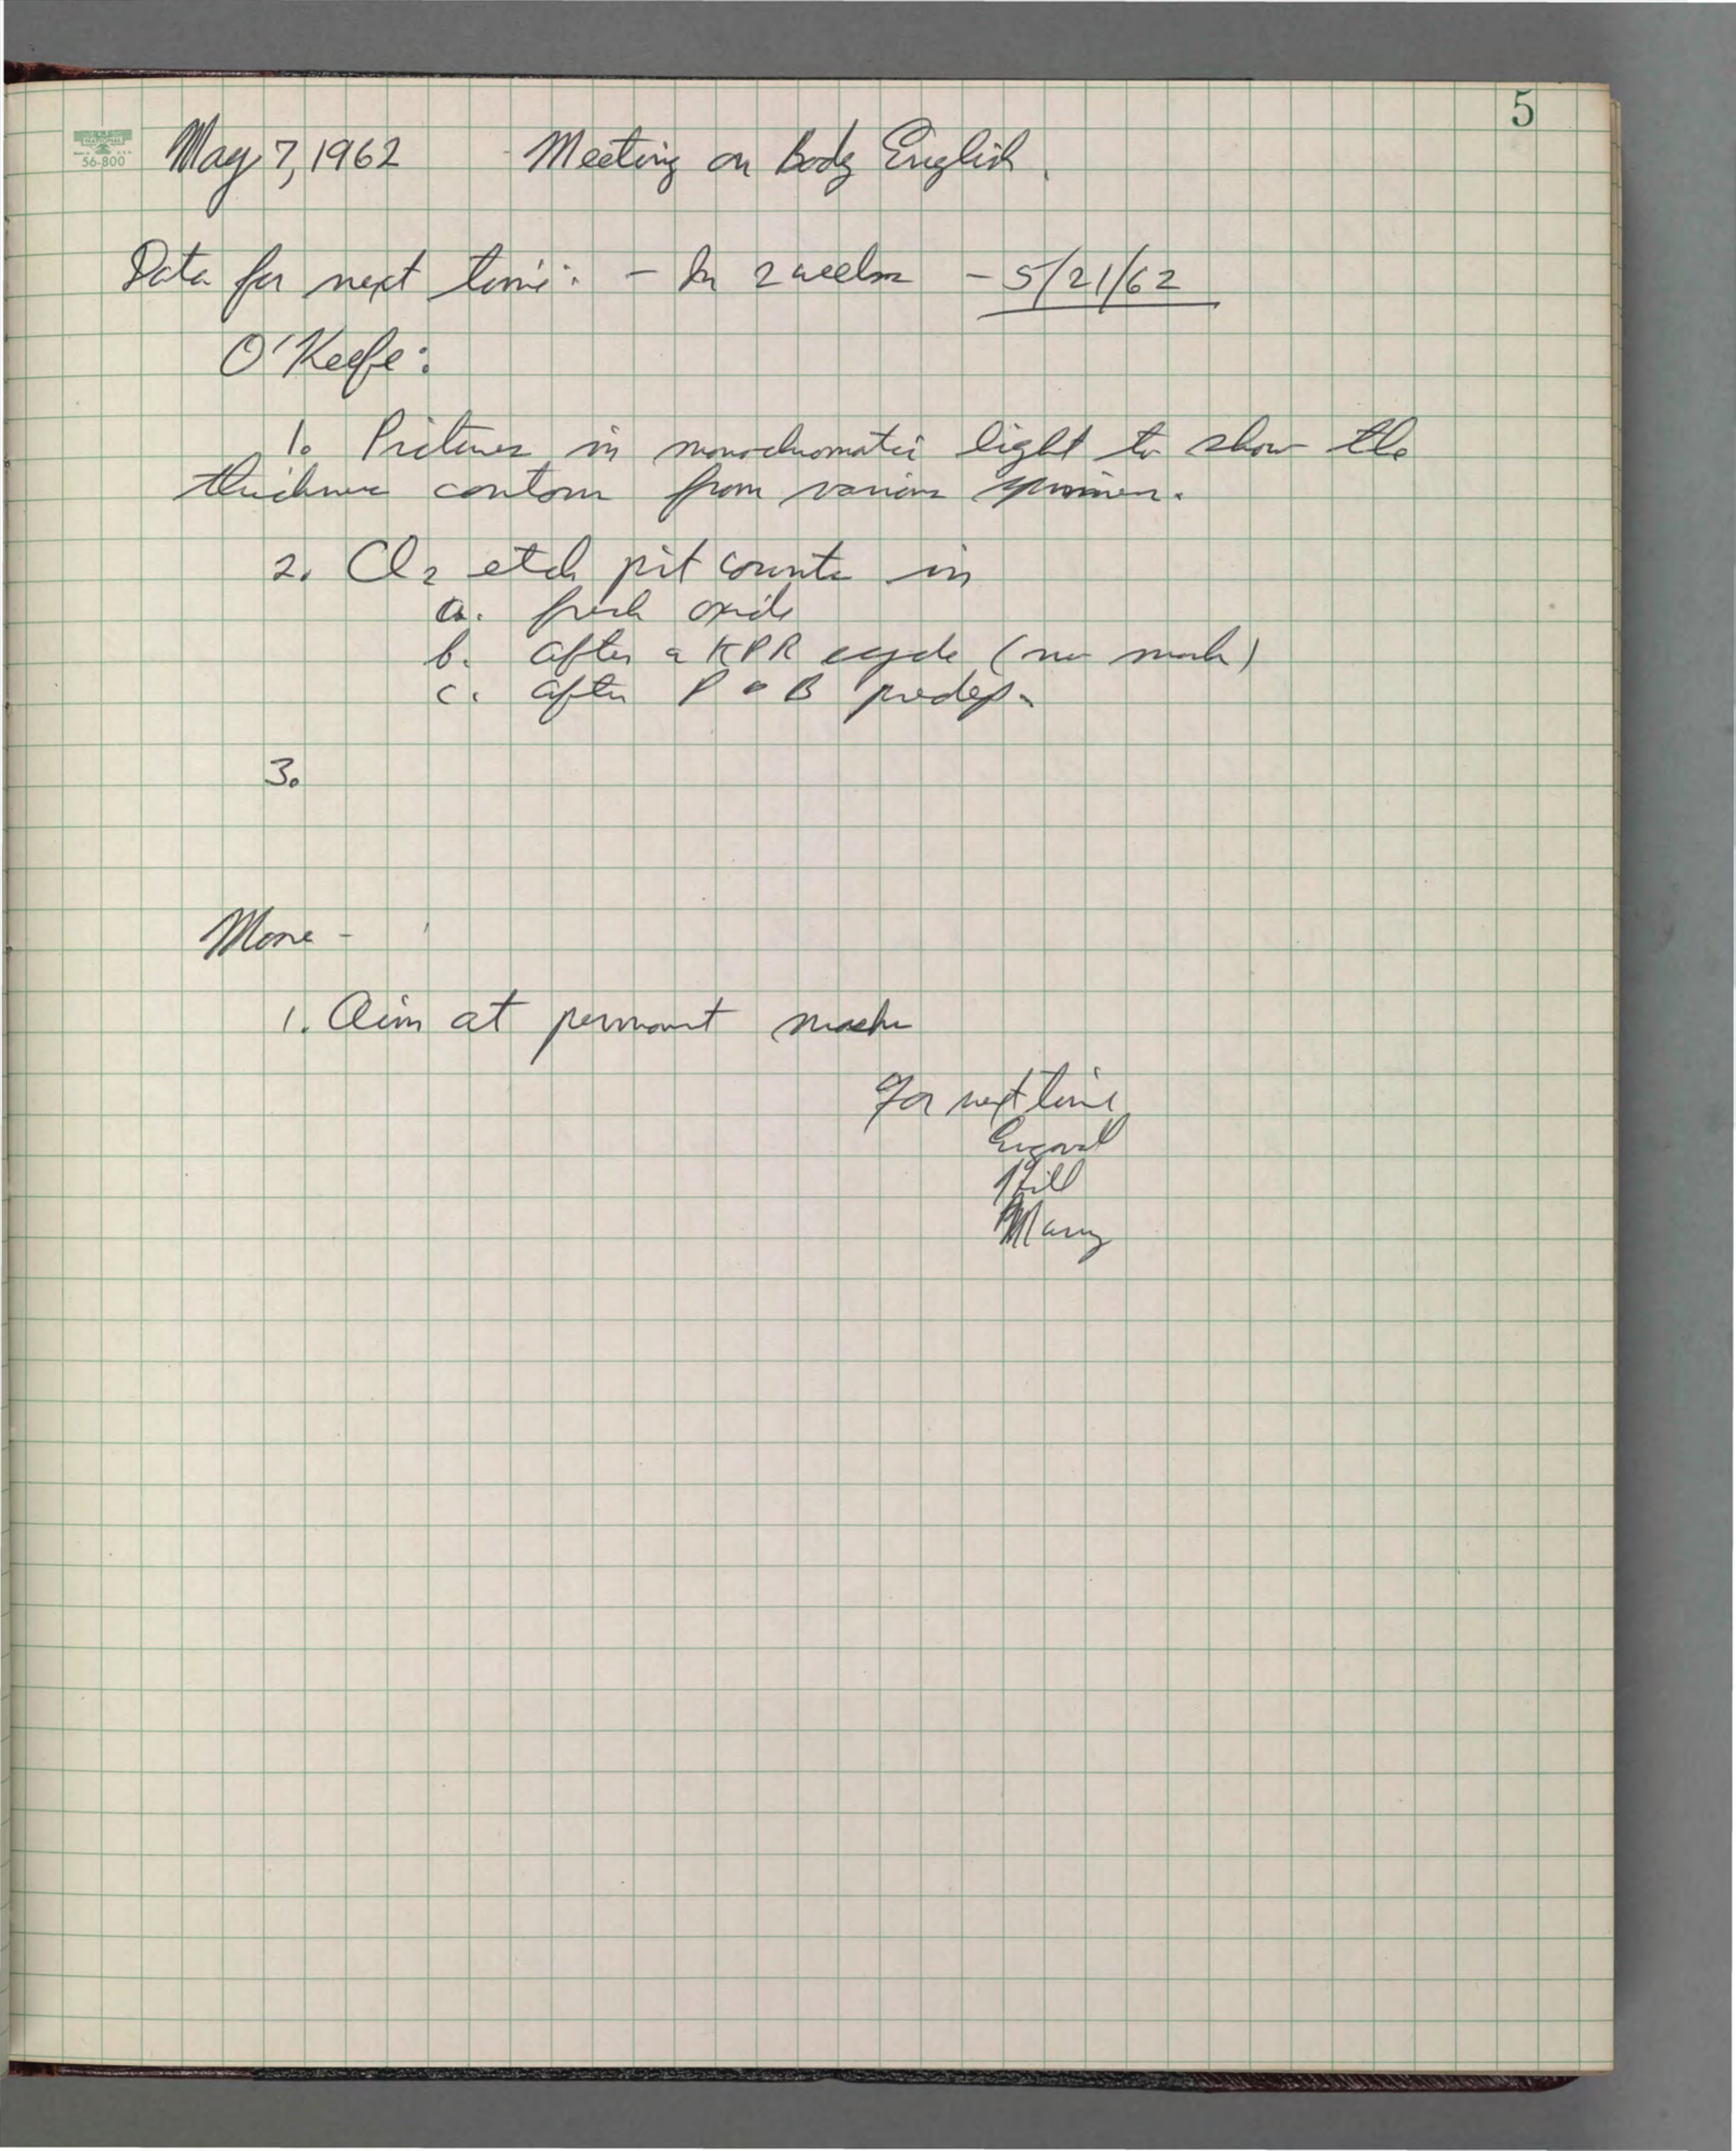 5
NATIONAL
56-800
May 7, 1962 Meeting on Body English.
Data for next time: - In 2 weeks - 5/21/62
O'Keefe:
1. Pictures in monochromatic light to show the
thickness contour from various specimens.
2. Cl2 etch pit counts in
a. fresh oxide
b. after a KPR cycle (no mask)
c. after P or B predep.
3.
More -
1. Aim at permanent masks
For next time
Hill